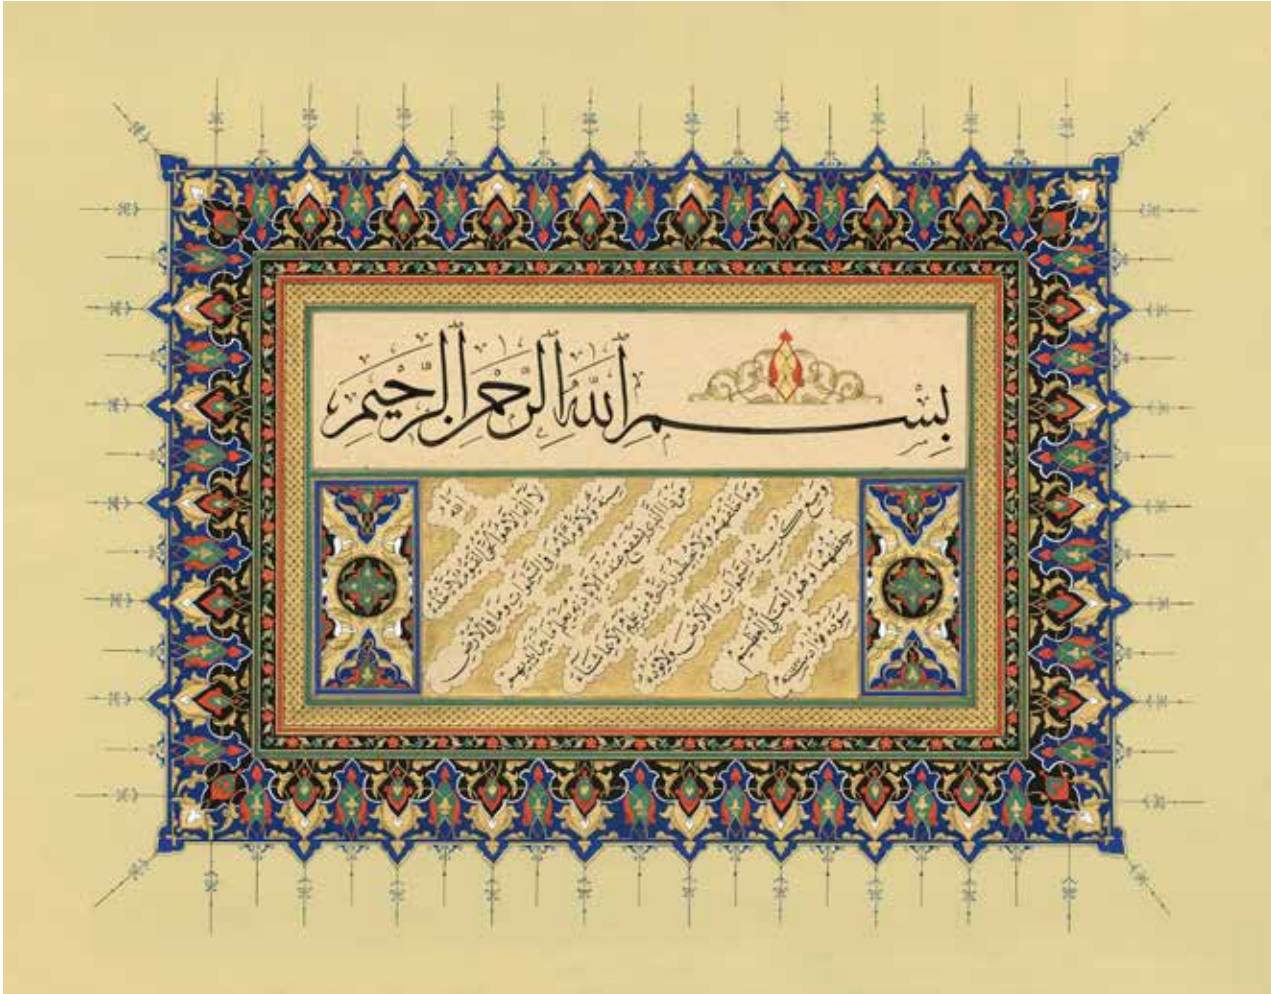 بِسْمِ اللّٰهِ الرَّحْمٰنِ الرَّحِيمِ
اَللّٰهُ
لَا اِلٰهَ اِلَّا هُوَ الْحَيُّ الْقَيُّومُ لَا تَأْخُذُهُ
سِنَةٌ وَلَا نَوْمٌ لَهُ مَا فِي السَّمٰوَاتِ وَمَا فِي الْاَرْضِ
مَنْ ذَا الَّذِي يَشْفَعُ عِنْدَهُ اِلَّا بِاِذْنِهِ يَعْلَمُ مَا بَيْنَ اَيْدِيهِمْ
وَمَا خَلْفَهُمْ وَلَا يُحِيطُونَ بِشَيْءٍ مِنْ عِلْمِهِ اِلَّا بِمَا شَاءَ
وَسِعَ كُرْسِيُّهُ السَّمٰوَاتِ وَالْاَرْضَ وَلَا يَؤُدُهُ
حِفْظُهُمَا وَهُوَ الْعَلِيُّ الْعَظِيمُ
سوّده فؤاد